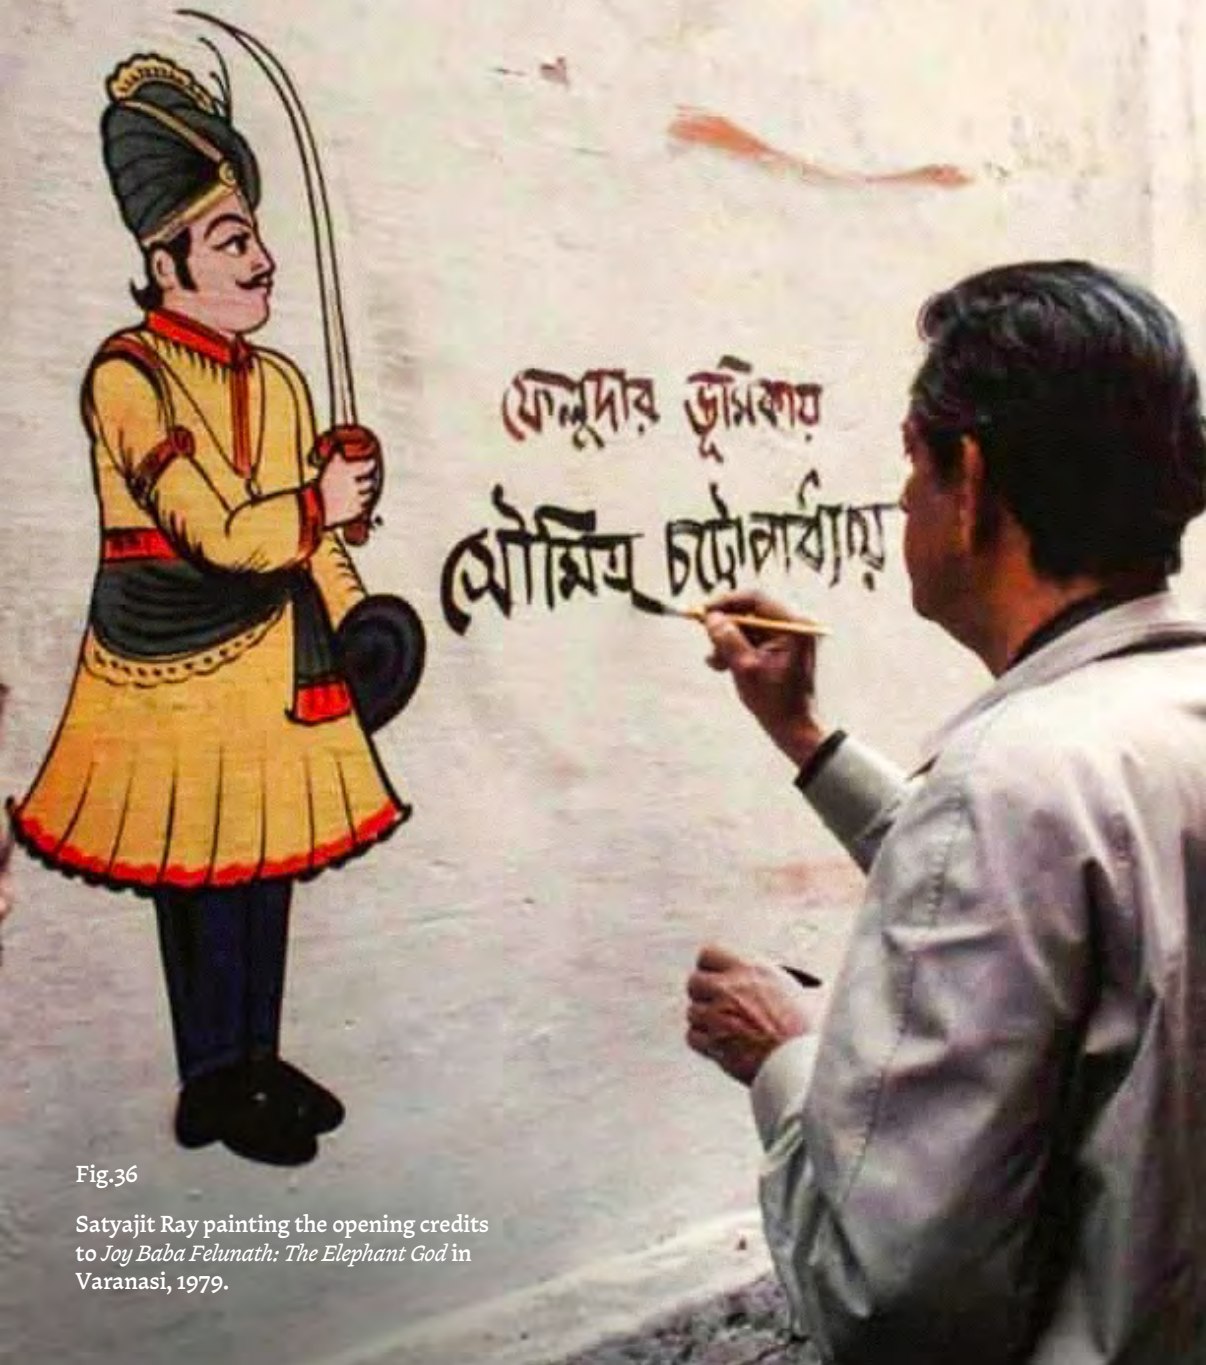 ফেলুদার ভূমিকায়
সৌমিত্র চট্টোপাধ্যায়
Fig.36
Satyajit Ray painting the opening credits
to Joy Baba Felunath: The Elephant God in
Varanasi, 1979.